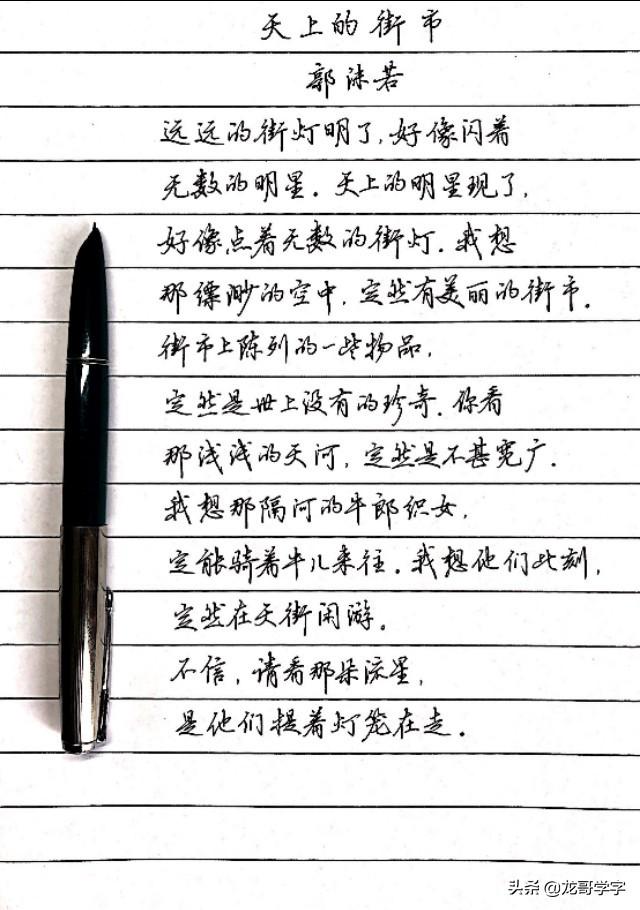 天上的街市
郭沫若
远远的街灯明了,好像闪着
无数的明星。天上的明星现了,
好像点着无数的街灯。我想
那缥缈的空中,定然有美丽的街市。
街市上陈列的一些物品,
定然是世上没有的珍奇。你看
那浅浅的天河,定然是不甚宽广。
我想那隔河的牛郎织女,
定能骑着牛儿来往。我想他们此刻,
定然在天街闲游。
不信,请看那朵流星,
是他们提着灯笼在走。
头条 @龙哥学字